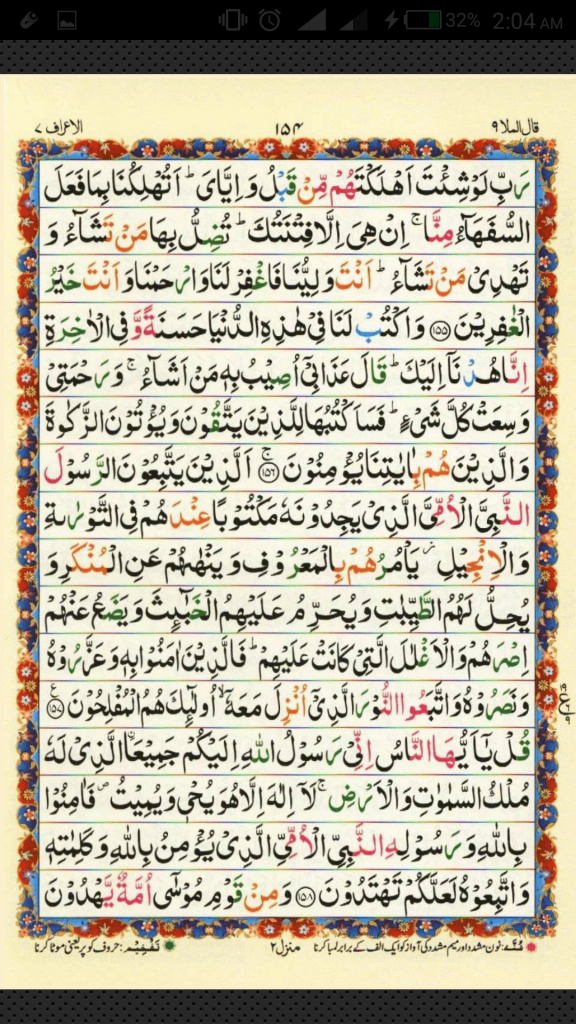 32% 2:04 AM
قال الملا ٩ ١٥٤ الاعراف ٧
رَبِّ لَوْ شِئْتَ اَهْلَكْتَهُمْ مِّنْ قَبْلُ وَ اِيَّایَ ؕ اَتُهْلِكُنَا بِمَا فَعَلَ
السُّفَهَآءُ مِنَّا ۚ اِنْ هِیَ اِلَّا فِتْنَتُكَ ؕ تُضِلُّ بِهَا مَنْ تَشَآءُ وَ
تَهْدِیْ مَنْ تَشَآءُ ؕ اَنْتَ وَلِيُّنَا فَاغْفِرْ لَنَا وَارْحَمْنَا وَ اَنْتَ خَيْرُ
الْغٰفِرِيْنَ ﴿١٥٥﴾ وَ اكْتُبْ لَنَا فِیْ هٰذِهِ الدُّنْيَا حَسَنَةً وَّ فِی الْاٰخِرَةِ
اِنَّا هُدْنَاۤ اِلَيْكَ ؕ قَالَ عَذَابِیْۤ اُصِيْبُ بِهٖ مَنْ اَشَآءُ ۚ وَ رَحْمَتِیْ
وَسِعَتْ كُلَّ شَیْءٍ ؕ فَسَاَكْتُبُهَا لِلَّذِيْنَ يَتَّقُوْنَ وَ يُؤْتُوْنَ الزَّكٰوةَ
وَالَّذِيْنَ هُمْ بِاٰيٰتِنَا يُؤْمِنُوْنَ ﴿١٥٦﴾ۚ اَلَّذِيْنَ يَتَّبِعُوْنَ الرَّسُوْلَ
النَّبِیَّ الْاُمِّیَّ الَّذِیْ يَجِدُوْنَهٗ مَكْتُوْبًا عِنْدَهُمْ فِی التَّوْرٰىةِ
وَالْاِنْجِيْلِ ؗ يَاْمُرُهُمْ بِالْمَعْرُوْفِ وَ يَنْهٰىهُمْ عَنِ الْمُنْكَرِ وَ
يُحِلُّ لَهُمُ الطَّيِّبٰتِ وَ يُحَرِّمُ عَلَيْهِمُ الْخَبٰٓئِثَ وَ يَضَعُ عَنْهُمْ
اِصْرَهُمْ وَالْاَغْلٰلَ الَّتِیْ كَانَتْ عَلَيْهِمْ ؕ فَالَّذِيْنَ اٰمَنُوْا بِهٖ وَ عَزَّرُوْهُ
وَ نَصَرُوْهُ وَ اتَّبَعُوا النُّوْرَ الَّذِیْۤ اُنْزِلَ مَعَهٗۤ ۙ اُولٰٓئِكَ هُمُ الْمُفْلِحُوْنَ ﴿١٥٧﴾
قُلْ يٰۤاَيُّهَا النَّاسُ اِنِّیْ رَسُوْلُ اللّٰهِ اِلَيْكُمْ جَمِيْعَا ۨالَّذِیْ لَهٗ
مُلْكُ السَّمٰوٰتِ وَالْاَرْضِ ۚ لَاۤ اِلٰهَ اِلَّا هُوَ يُحْیٖ وَ يُمِيْتُ ۪ فَاٰمِنُوْا
بِاللّٰهِ وَ رَسُوْلِهِ النَّبِیِّ الْاُمِّیِّ الَّذِیْ يُؤْمِنُ بِاللّٰهِ وَ كَلِمٰتِهٖ
وَاتَّبِعُوْهُ لَعَلَّكُمْ تَهْتَدُوْنَ ﴿١٥٨﴾ وَ مِنْ قَوْمِ مُوْسٰۤی اُمَّةٌ يَّهْدُوْنَ
غُنَّہ: نون مشدد اور میم مشدد کی آواز کو ایک الف کے برابر لمبا کرنا منزل ٢ تَفْخِیْم: حروف کو پُر یعنی موٹا کرنا